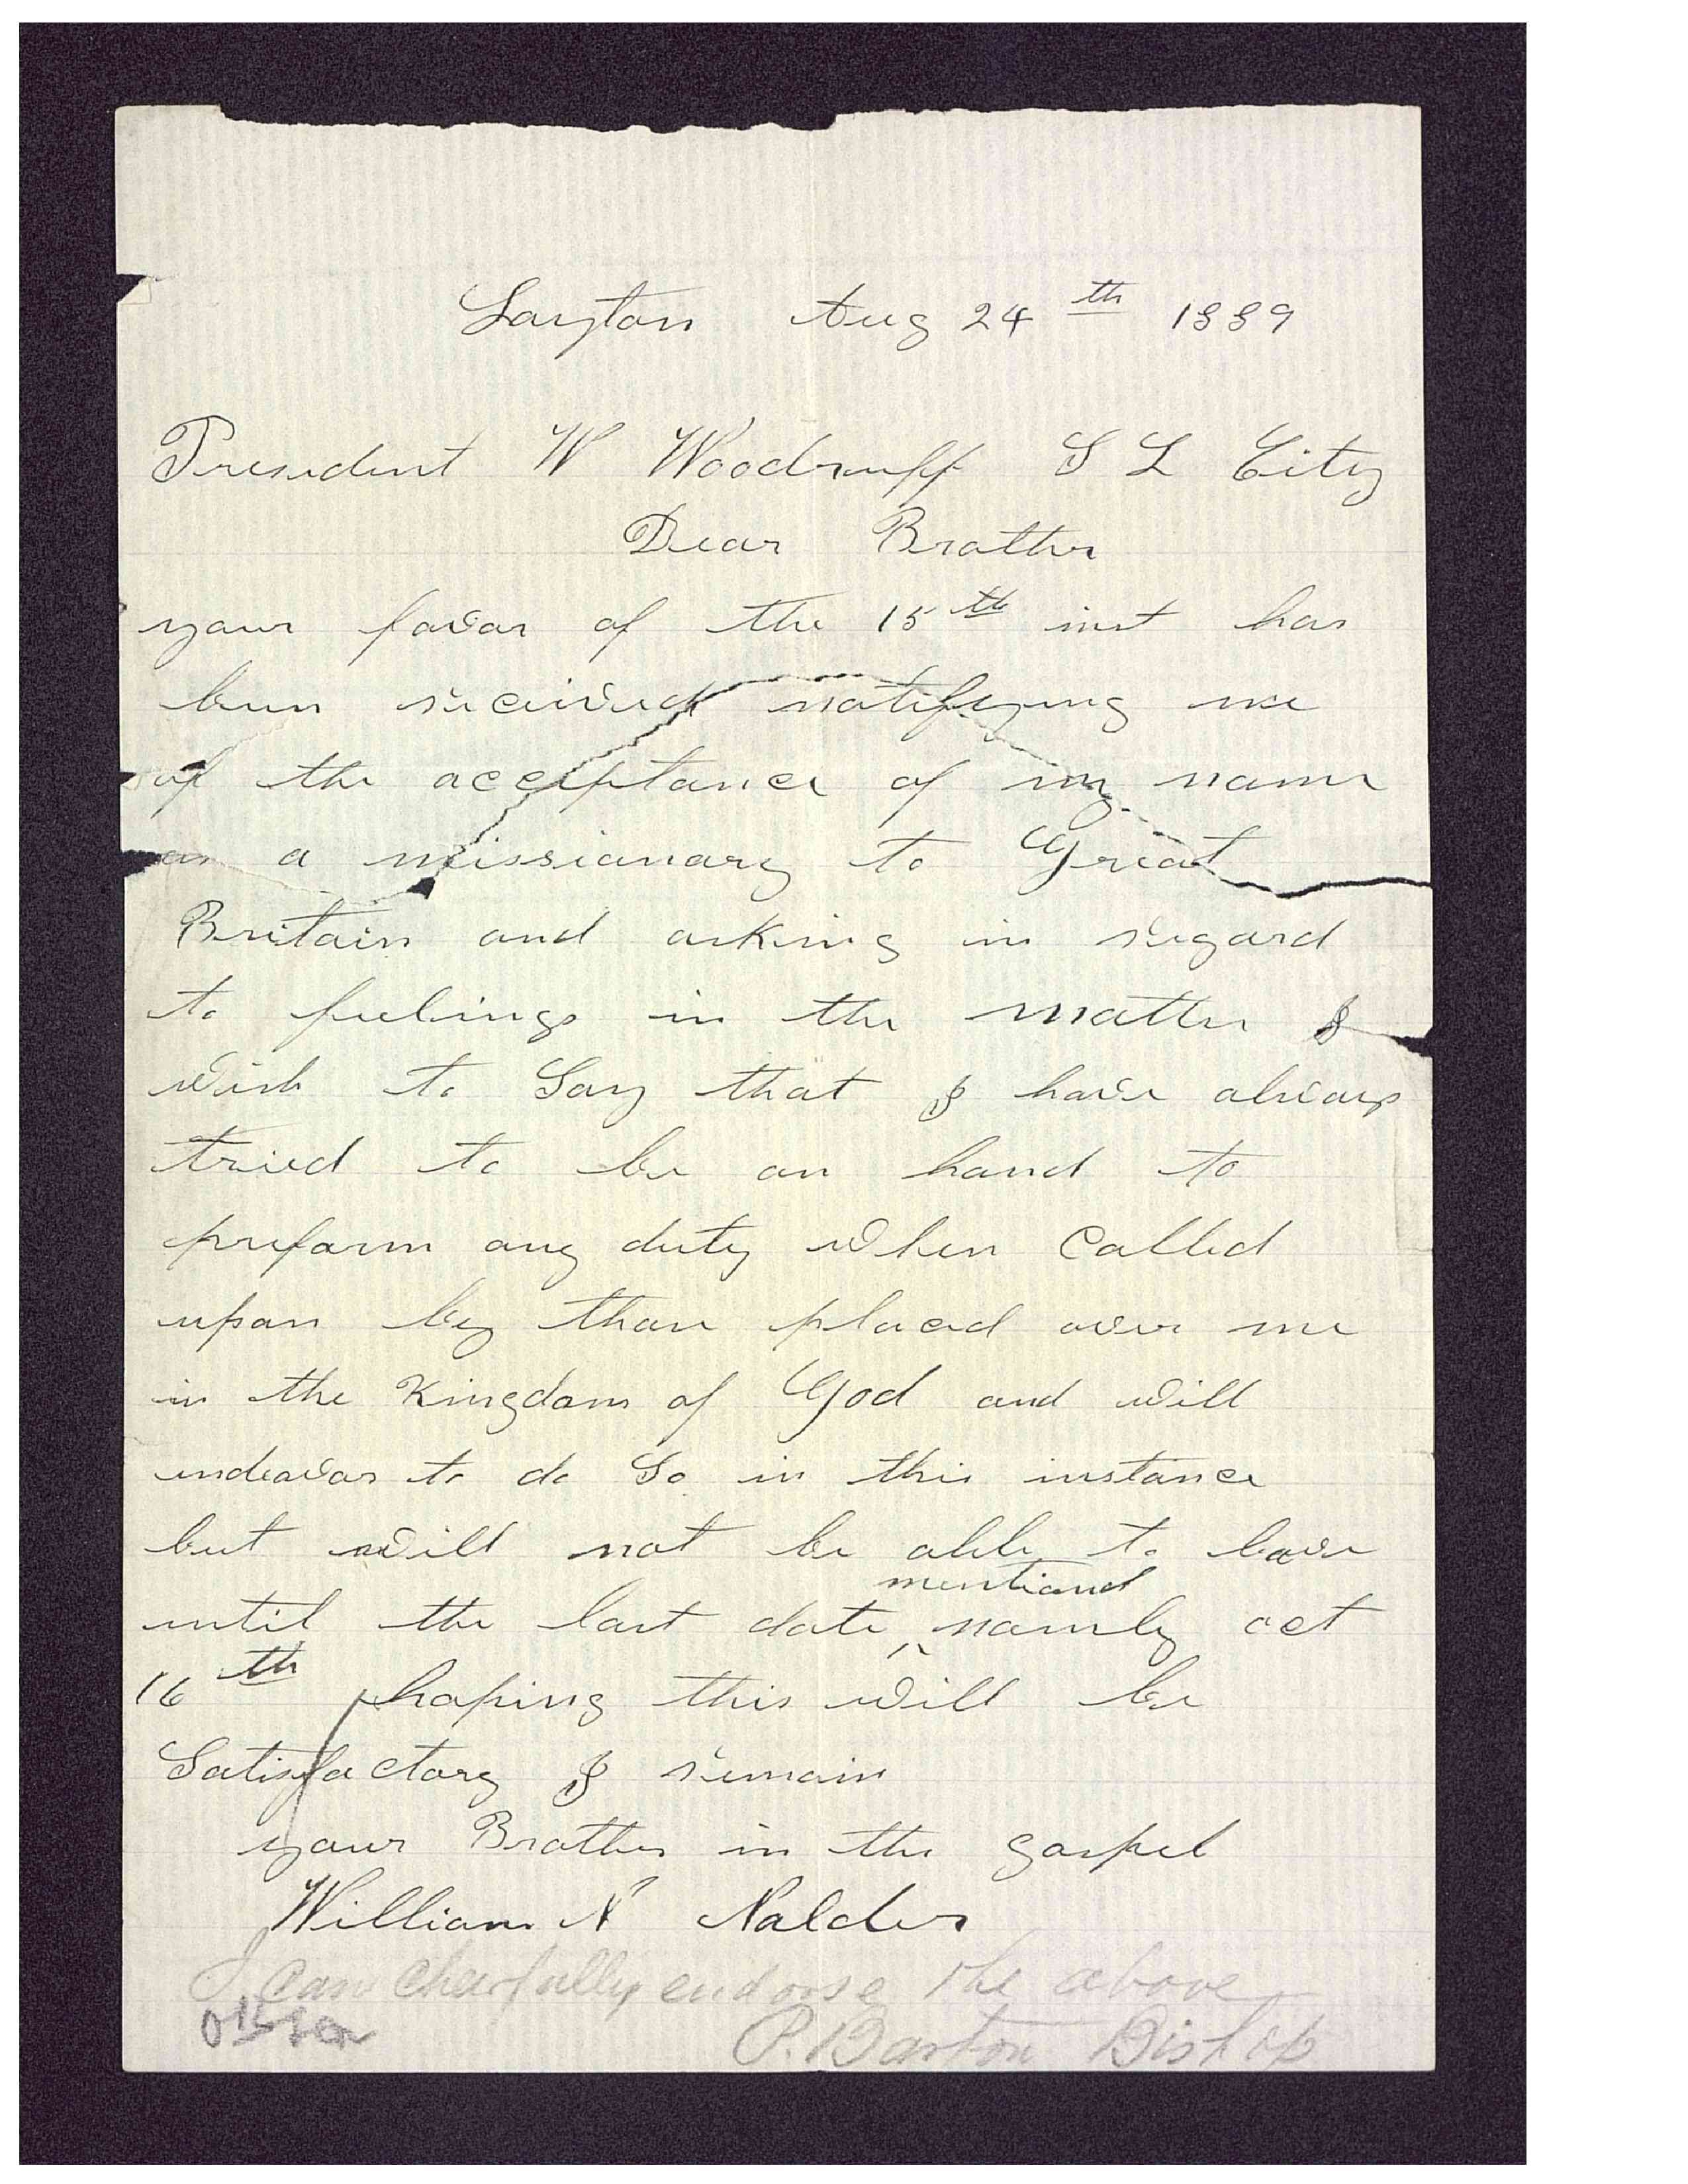 Layton Aug 24th 1889
President W Woodruff S L City
Dear Brother
your favor of the 15th inst has
been received notifying me
of the acceptance of my name
as a missionary to Great
Britain and asking in regard
to feelings in the matter I
wish to Say that I have always
tried to be on hand to
preform any duty when Called
upon by those placed over me
in the Kingdom of God and will
endeavor to do So in this instance
but will not be able to leave
mentiond
until the last date ^ namly oct
16th hoping this will be
Satisfactory I remain
your Brother in the gospel
William N Nalder
I can chearfully endorse the above
P. Barton Bishop